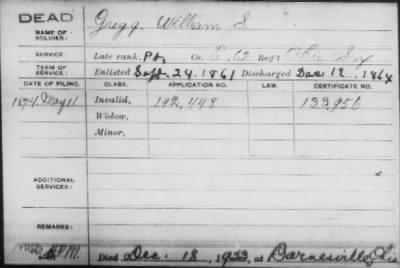 DEAD
NAME OF SOLDIER: Gregg William S.
SERVICE: Late rank, Pt, Co. E, 62 Reg't Ohio Inf
TERM OF SERVICE: Enlisted Sept. 24, 1861 Discharged Dec 12, 1864
DATE OF FILING. CLASS. APPLICATION NO. LAW. CERTIFICATE NO.
1874, May 11 Invalid, 192,448 133956
Widow,
Minor,
ADDITIONAL SERVICES:
REMARKS:
Died Dec. 18, 1922, at Barnesville, Ohio